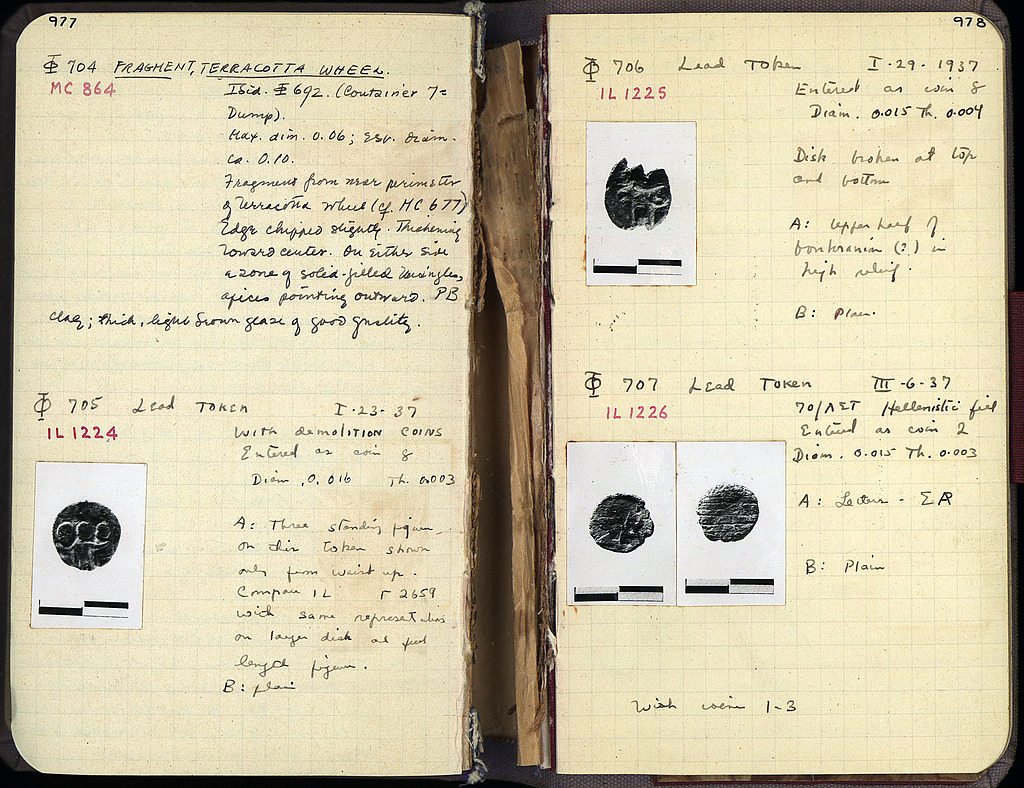 977
Φ 704 FRAGMENT, TERRACOTTA WHEEL.
MC 864
Ibid. Φ 692. (Container 7=
Dump).
Max. dim. 0.06; Est. diam.
ca. 0.10.
Fragment from near perimeter
of terracotta wheel (cf. MC 677)
Edge chipped slightly. Thickening
toward center. On either side
a zone of solid-filled triangles,
apices pointing outward. PB
clay; thick, light brown glaze of good quality.
Φ 705 Lead TOKEN I-23-37
IL 1224
With demolition COINS
Entered as coin 8
Diam. 0.016 Th. 0.003
A: Three standing figures
on this token shown
only from waist up.
Compare IL Γ 2659
with same representation
on larger disk at full
length figures.
B: plain
978
Φ 706 Lead Token I-29-1937
IL 1225
Entered as coin 8
Diam. 0.015 Th. 0.004
Disk broken at top
and bottom
A: Upper half of
boukranion (?) in
high relief.
B: Plain.
Φ 707 Lead Token III-6-37
IL 1226
70/ΛΣΤ Hellenistic fill
Entered as coin 2
Diam. 0.015 Th. 0.003
A: Letters - ΣΑΡ
B: Plain
With coins 1-3